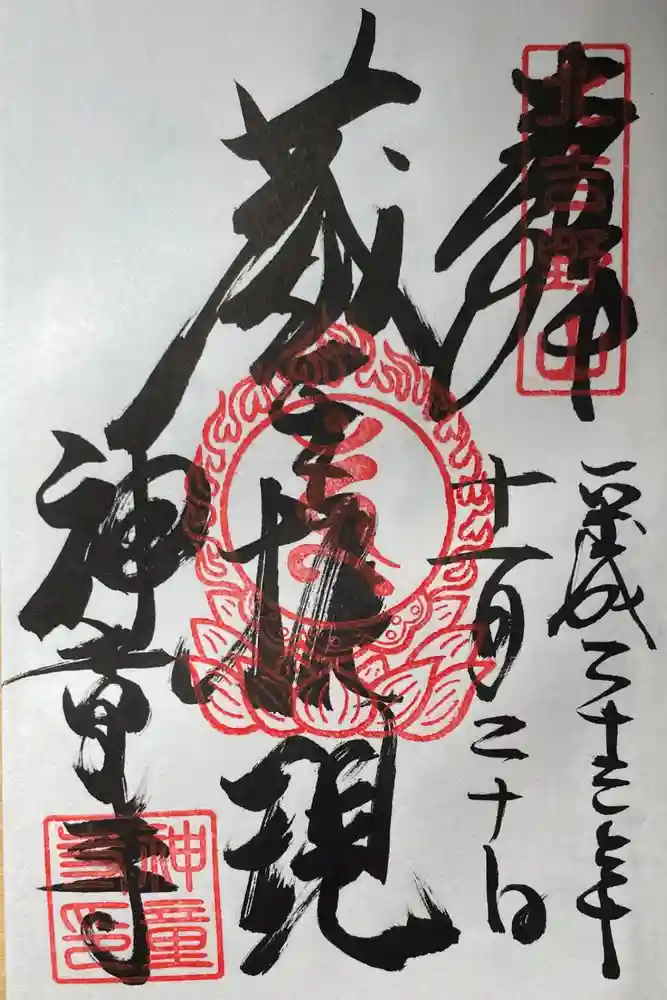 奉拝
北吉野山
平成二十三年
十一月二十日
蔵王権現
神童寺
神童寺印